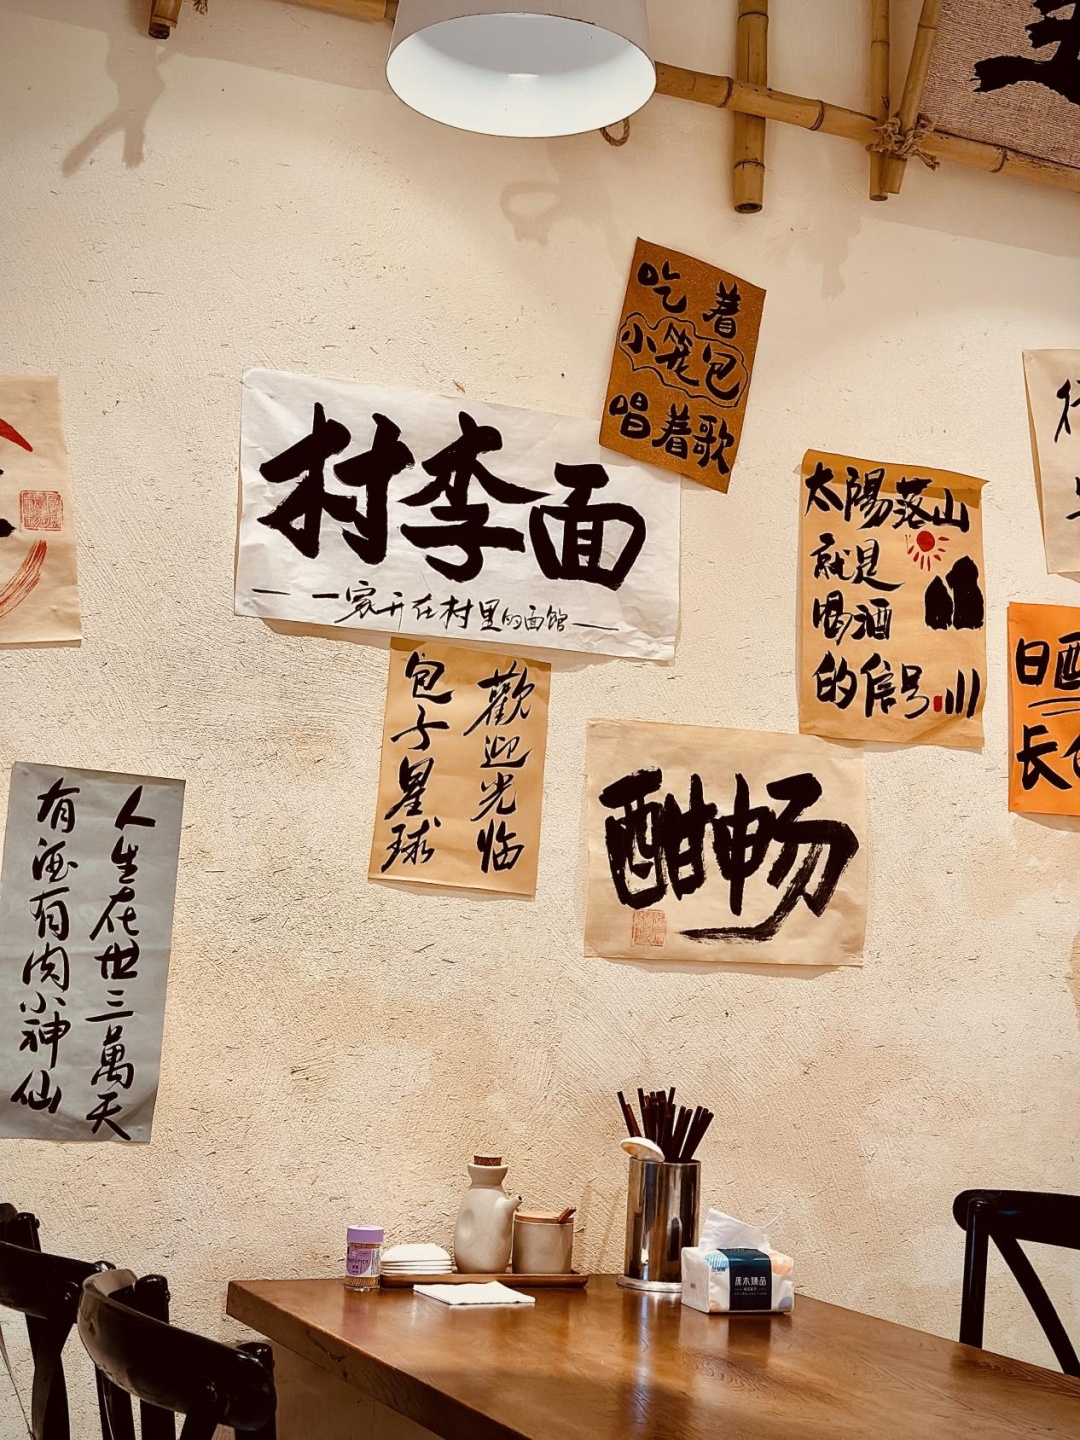 吃着
小笼包
唱着歌
村李面
一家开在村里的面馆
太陽落山
就是
喝酒
的信号
歡迎光临
包子星球
酣畅
人生在世三萬天
有酒有肉小神仙
日
长
原木臻品